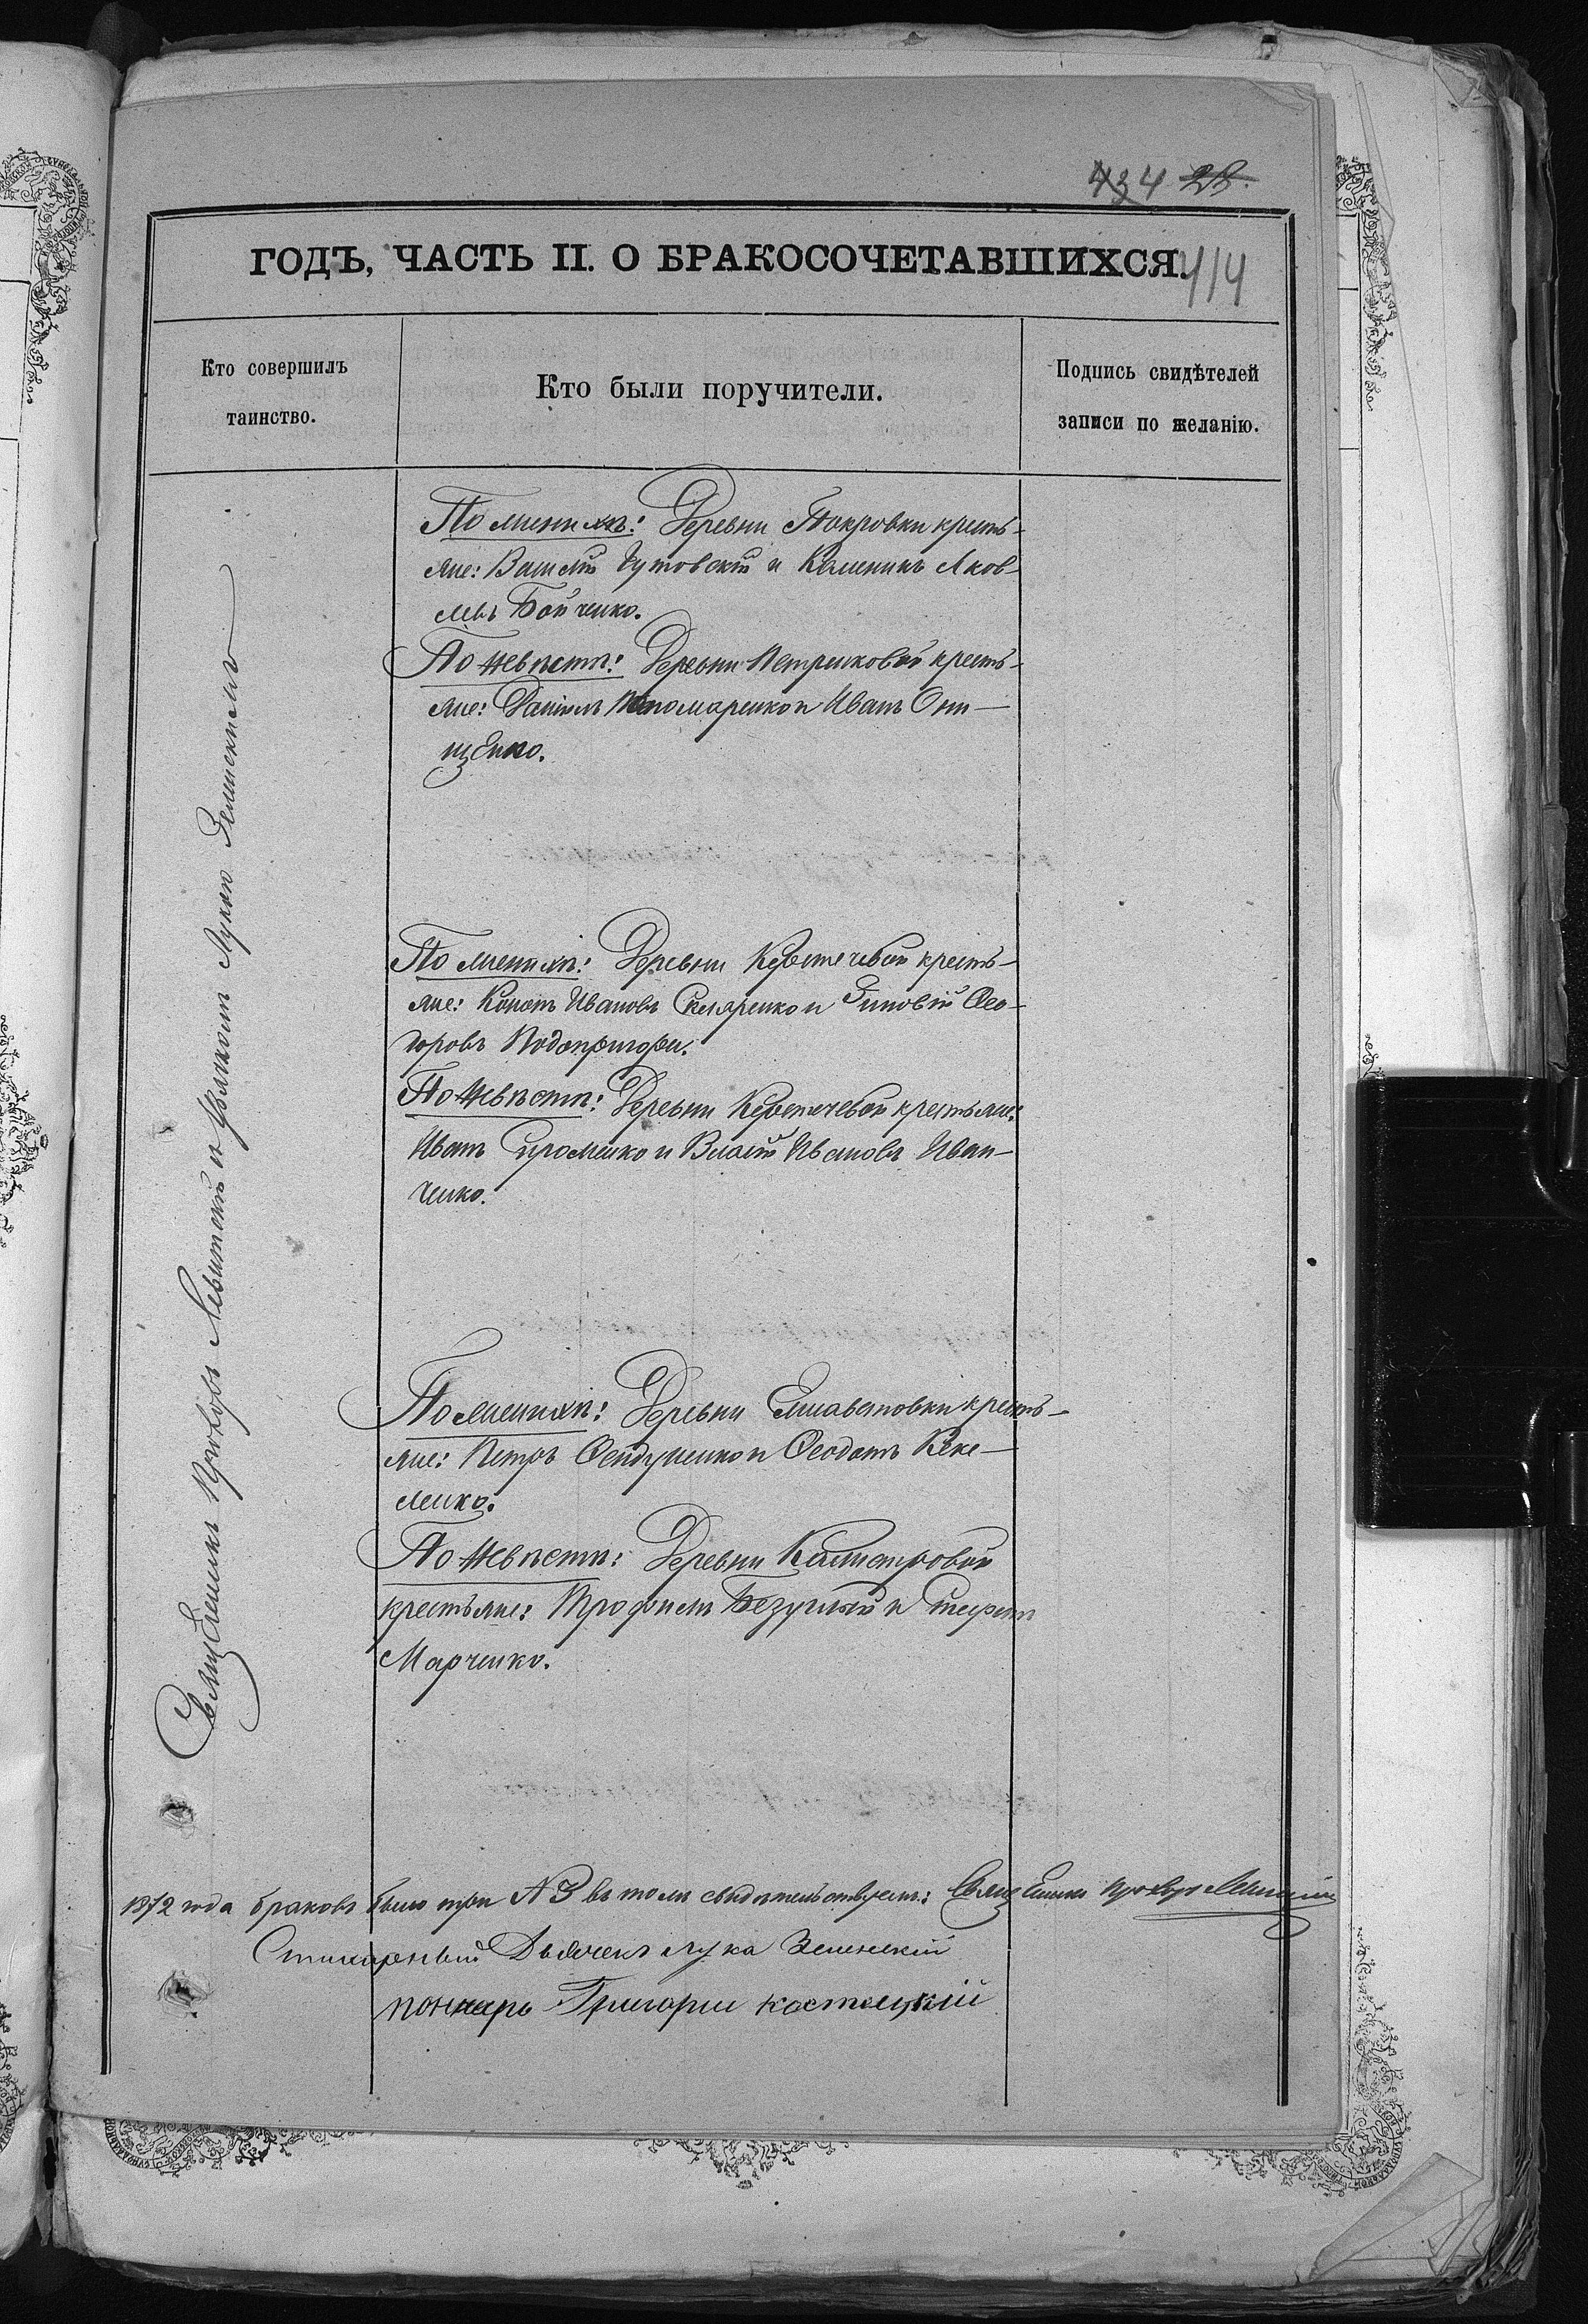 434 28.
ГОДЪ, ЧАСТЬ II. О БРАКОСОЧЕТАВШИХСЯ.
414
Кто совершилъ
таинство.
Кто были поручители.
Подпись свидѣтелей
записи по желанію.
Священникъ Прокопъ Левитскій и Дьячкомъ Лукою Зеленскимъ
По женихѣ: Деревни Покровки кресть-
яне: Василій Чутовскій и Калиникъ Яков-
левъ Бойченко.
По невѣстѣ: Деревни Петриковой кресть-
яне: Даніилъ Пономаренко и Иванъ Они-
щенко.
По женихѣ: Деревни кресть-
яне: Кононъ Ивановъ Скляренко и Зиновій Ѳео-
доровъ Подопригора.
По невѣстѣ: Деревни крестьяне:
Иванъ и Власій Ивановъ Иван-
ченко.
По женихѣ: Деревни Елисаветовки кресть-
яне: Петръ и Ѳеодотъ Кеке-
ленко.
По невѣстѣ: Деревни Калистровой
крестьяне: Трофимъ Безуглый и Стефанъ
Марченко.
1872 года браковъ было три № 3 въ томъ свидѣтельствуемъ: Священникъ
Стихарный Дьячекъ Лука Зеленский
понмарь Григории костецкий